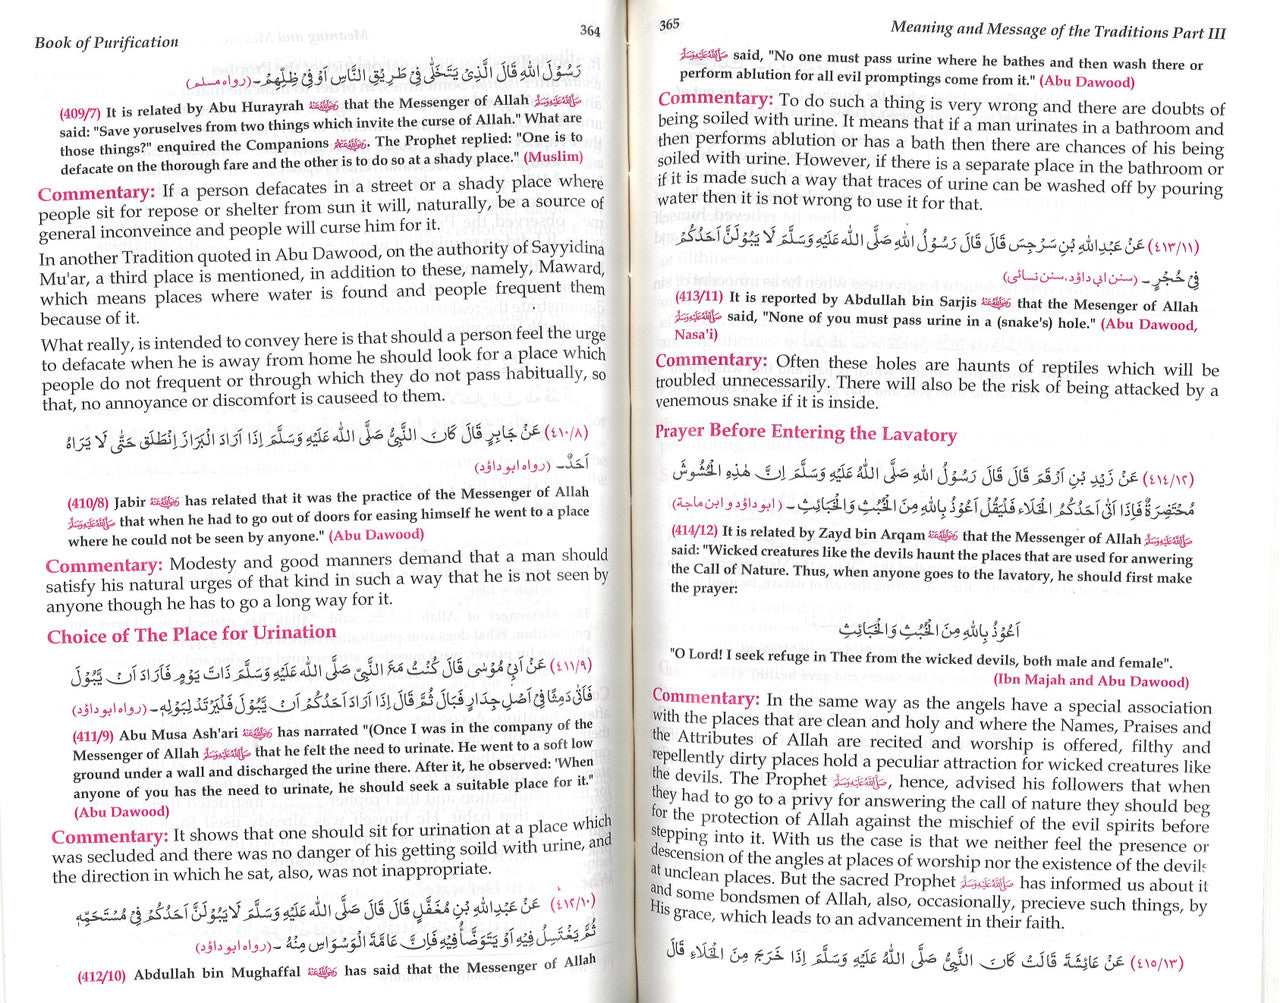 Book of Purification
364
رَسُوْلَ اللهِ قَالَ الَّذِىْ يَتَخَلّٰى فِىْ طَرِيْقِ النَّاسِ اَوْ فِىْ ظِلِّهِمْ۔ (رواه مسلم)
(409/7) It is related by Abu Hurayrah that the Messenger of Allah ﷺ
said: "Save yoruselves from two things which invite the curse of Allah." What are
those things?" enquired the Companions. The Prophet replied: "One is to
defacate on the thorough fare and the other is to do so at a shady place." (Muslim)
Commentary: If a person defacates in a street or a shady place where
people sit for repose or shelter from sun it will, naturally, be a source of
general inconveince and people will curse him for it.
In another Tradition quoted in Abu Dawood, on the authority of Sayyidina
Mu'ar, a third place is mentioned, in addition to these, namely, Maward,
which means places where water is found and people frequent them
because of it.
What really, is intended to convey here is that should a person feel the urge
to defacate when he is away from home he should look for a place which
people do not frequent or through which they do not pass habitually, so
that, no annoyance or discomfort is causeed to them.
(٤١٠/٨) عَنْ جَابِرٍ قَالَ كَانَ النَّبِىُّ صَلَّى الله عَلَيْهِ وَسَلَّمَ اِذَا اَرَادَ الْبَرَازَ اِنْطَلَقَ حَتّٰى لَا يَرَاهُ
اَحَدٌ۔ (رواه ابو داؤد)
(410/8) Jabir has related that it was the practice of the Messenger of Allah
ﷺ that when he had to go out of doors for easing himself he went to a place
where he could not be seen by anyone." (Abu Dawood)
Commentary: Modesty and good manners demand that a man should
satisfy his natural urges of that kind in such a way that he is not seen by
anyone though he has to go a long way for it.
Choice of The Place for Urination
(٤١١/٩) عَنْ اَبِىْ مُوْسٰى قَالَ كُنْتُ مَعَ النَّبِىِّ صَلَّى الله عَلَيْهِ وَسَلَّمَ ذَاتَ يَوْمٍ فَاَرَادَ اَنْ يَّبُوْلَ
فَاَتٰى دَمِثًا فِىْ اَصْلِ جِدَارٍ فَبَالَ ثُمَّ قَالَ اِذَا اَرَادَ اَحَدُكُمْ اَنْ يَّبُوْلَ فَلْيَرْتَدْ لِبَوْلِهٖ۔ (رواه ابو داؤد)
(411/9) Abu Musa Ash'ari has narrated "(Once I was in the company of the
Messenger of Allah ﷺ that he felt the need to urinate. He went to a soft low
ground under a wall and discharged the urine there. After it, he observed: 'When
anyone of you has the need to urinate, he should seek a suitable place for it."
(Abu Dawood)
Commentary: It shows that one should sit for urination at a place which
was secluded and there was no danger of his getting soild with urine, and
the direction in which he sat, also, was not inappropriate.
(٤١٢/١٠) عَنْ عَبْدِاللهِ بْنِ مُغَفَّلٍ قَالَ قَالَ صَلَّى الله عَلَيْهِ وَسَلَّمَ لَا يَبُوْلَنَّ اَحَدُكُمْ فِىْ مُسْتَحَمِّهٖ
ثُمَّ يَغْتَسِلُ فِيْهِ اَوْ يَتَوَضَّأُ فِيْهِ فَاِنَّ عَامَّةَ الْوَسْوَاسِ مِنْهُ ۔ (رواه ابو داؤد)
(412/10) Abdullah bin Mughaffal has said that the Messenger of Allah
365
Meaning and Message of the Traditions Part III
ﷺ said, "No one must pass urine where he bathes and then wash there or
perform ablution for all evil promptings come from it." (Abu Dawood)
Commentary: To do such a thing is very wrong and there are doubts of
being soiled with urine. It means that if a man urinates in a bathroom and
then performs ablution or has a bath then there are chances of his being
soiled with urine. However, if there is a separate place in the bathroom or
if it is made such a way that traces of urine can be washed off by pouring
water then it is not wrong to use it for that.
(٤١٣/١١) عَنْ عَبْدِاللهِ بْنِ سَرْجِسَ قَالَ قَالَ رَسُوْلُ اللهِ صَلَّى الله عَلَيْهِ وَسَلَّمَ لَا يَبُوْلَنَّ اَحَدُكُمْ
فِىْ حُجْرٍ۔ (سنن ابى داؤد، سنن نسائى)
(413/11) It is reported by Abdullah bin Sarjis that the Mesenger of Allah
ﷺ said, "None of you must pass urine in a (snake's) hole." (Abu Dawood,
Nasa'i)
Commentary: Often these holes are haunts of reptiles which will be
troubled unnecessarily. There will also be the risk of being attacked by a
venemous snake if it is inside.
Prayer Before Entering the Lavatory
(٤١٤/١٢) عَنْ زَيْدِ بْنِ اَرْقَمَ قَالَ قَالَ رَسُوْلُ اللهِ صَلَّى اللهُ عَلَيْهِ وَسَلَّمَ اِنَّ هٰذِهِ الْحُشُوْشَ
مُحْتَضِرَةٌ فَاِذَا اَتٰى اَحَدُكُمُ الْخَلَاءَ فَلْيَقُلْ اَعُوْذُ بِاللهِ مِنَ الْخُبُثِ وَالْخَبَائِثِ۔ (ابو داؤد و ابن ماجة)
(414/12) It is related by Zayd bin Arqam that the Messenger of Allah ﷺ
said: "Wicked creatures like the devils haunt the places that are used for anwering
the Call of Nature. Thus, when anyone goes to the lavatory, he should first make
the prayer:
اَعُوْذُ بِاللهِ مِنَ الْخُبُثِ وَالْخَبَائِثِ
"O Lord! I seek refuge in Thee from the wicked devils, both male and female".
(Ibn Majah and Abu Dawood)
Commentary: In the same way as the angels have a special association
with the places that are clean and holy and where the Names, Praises and
the Attributes of Allah are recited and worship is offered, filthy and
repellently dirty places hold a peculiar attraction for wicked creatures like
the devils. The Prophet ﷺ, hence, advised his followers that when
they had to go to a privy for answering the call of nature they should beg
for the protection of Allah against the mischief of the evil spirits before
stepping into it. With us the case is that we neither feel the presence or
descension of the angels at places of worship nor the existence of the devils
at unclean places. But the sacred Prophet ﷺ has informed us about it
and some bondsmen of Allah, also, occasionally, precieve such things, by
His grace, which leads to an advancement in their faith.
(٤١٥/١٣) عَنْ عَائِشَةَ قَالَتْ كَانَ النَّبِىُّ صَلَّى اللهُ عَلَيْهِ وَسَلَّمَ اِذَا خَرَجَ مِنَ الْخَلَاءِ قَالَ